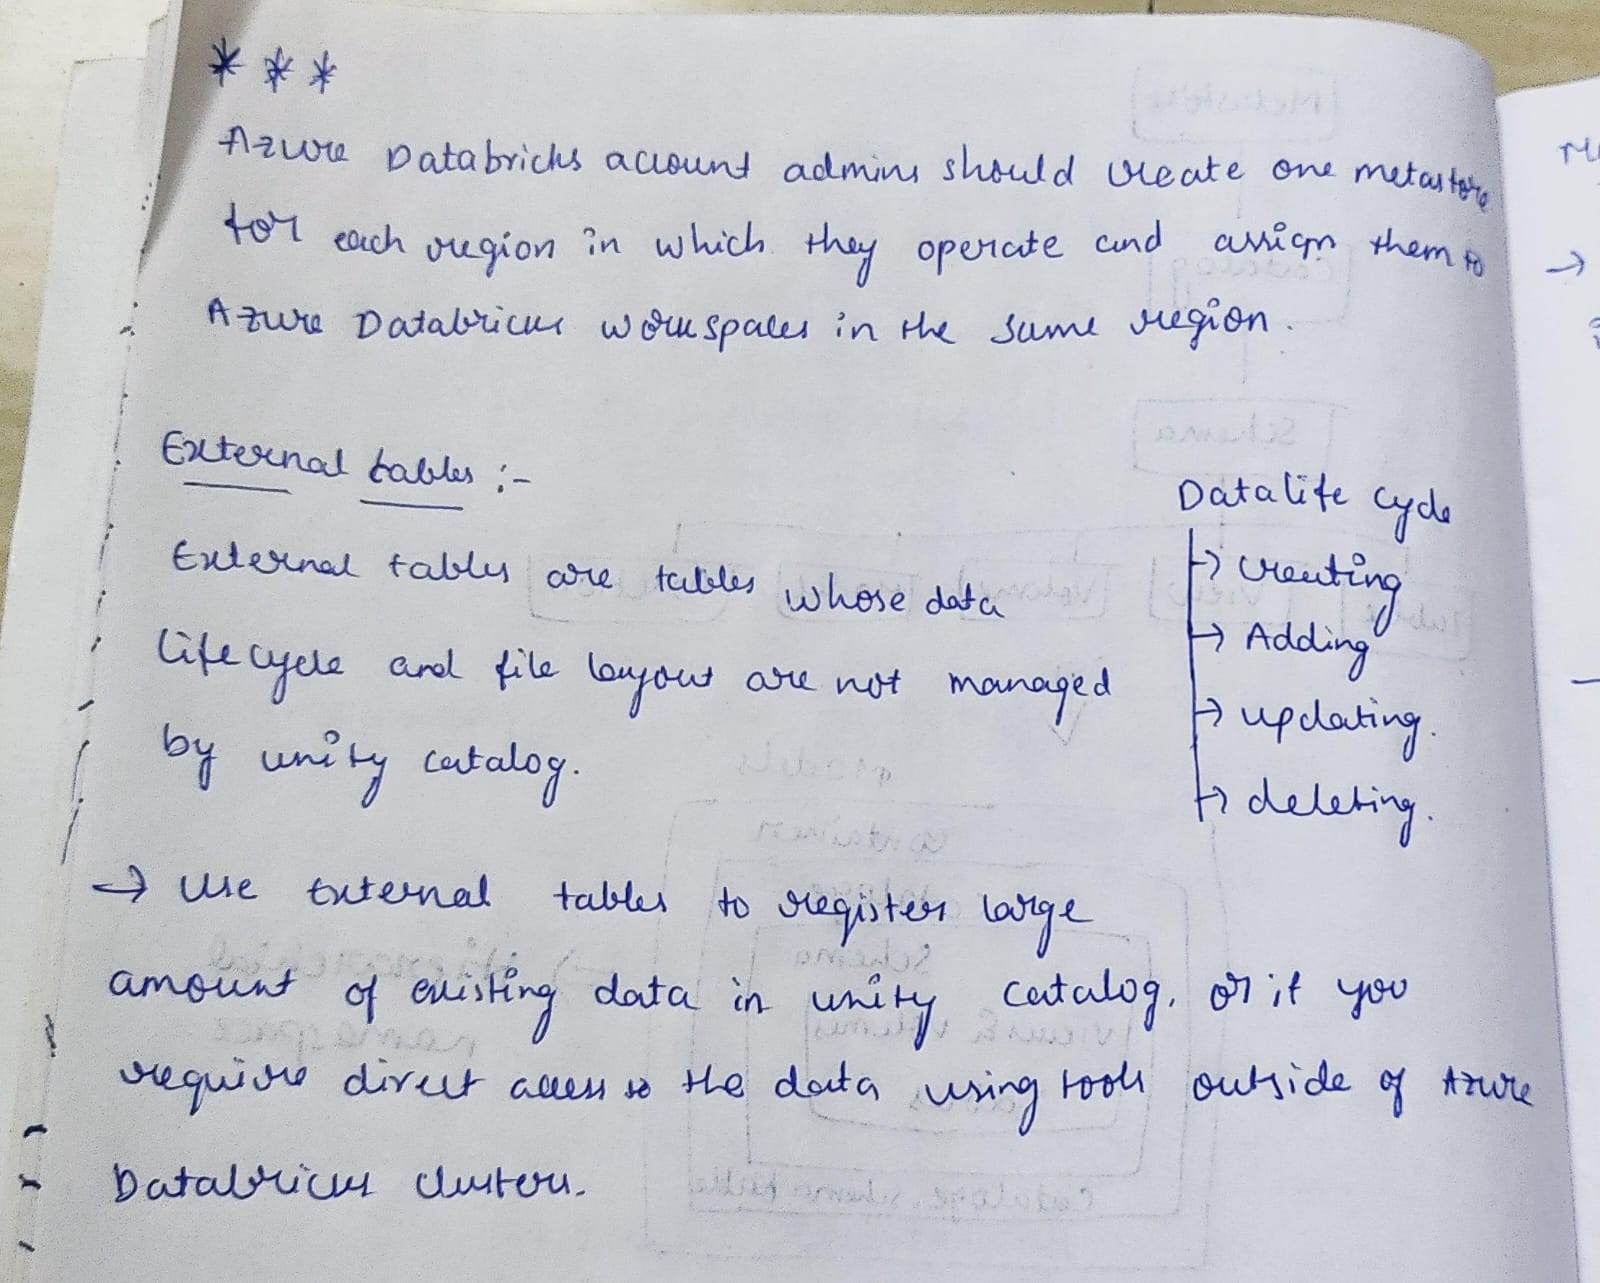 * * *
Azure Databricks account admins should create one metastore
for each region in which they operate and assign them to
Azure Databricks workspaces in the same region.
External tables :-
External tables are tables whose data
lifecycle and file layout are not managed
by unity catalog.
Data life cycle
→ creating
→ Adding
→ updating.
→ deleting.
→ Use External tables to register large
amount of existing data in unity catalog, or if you
require direct access to the data using tools outside of Azure
Databricks clusters.